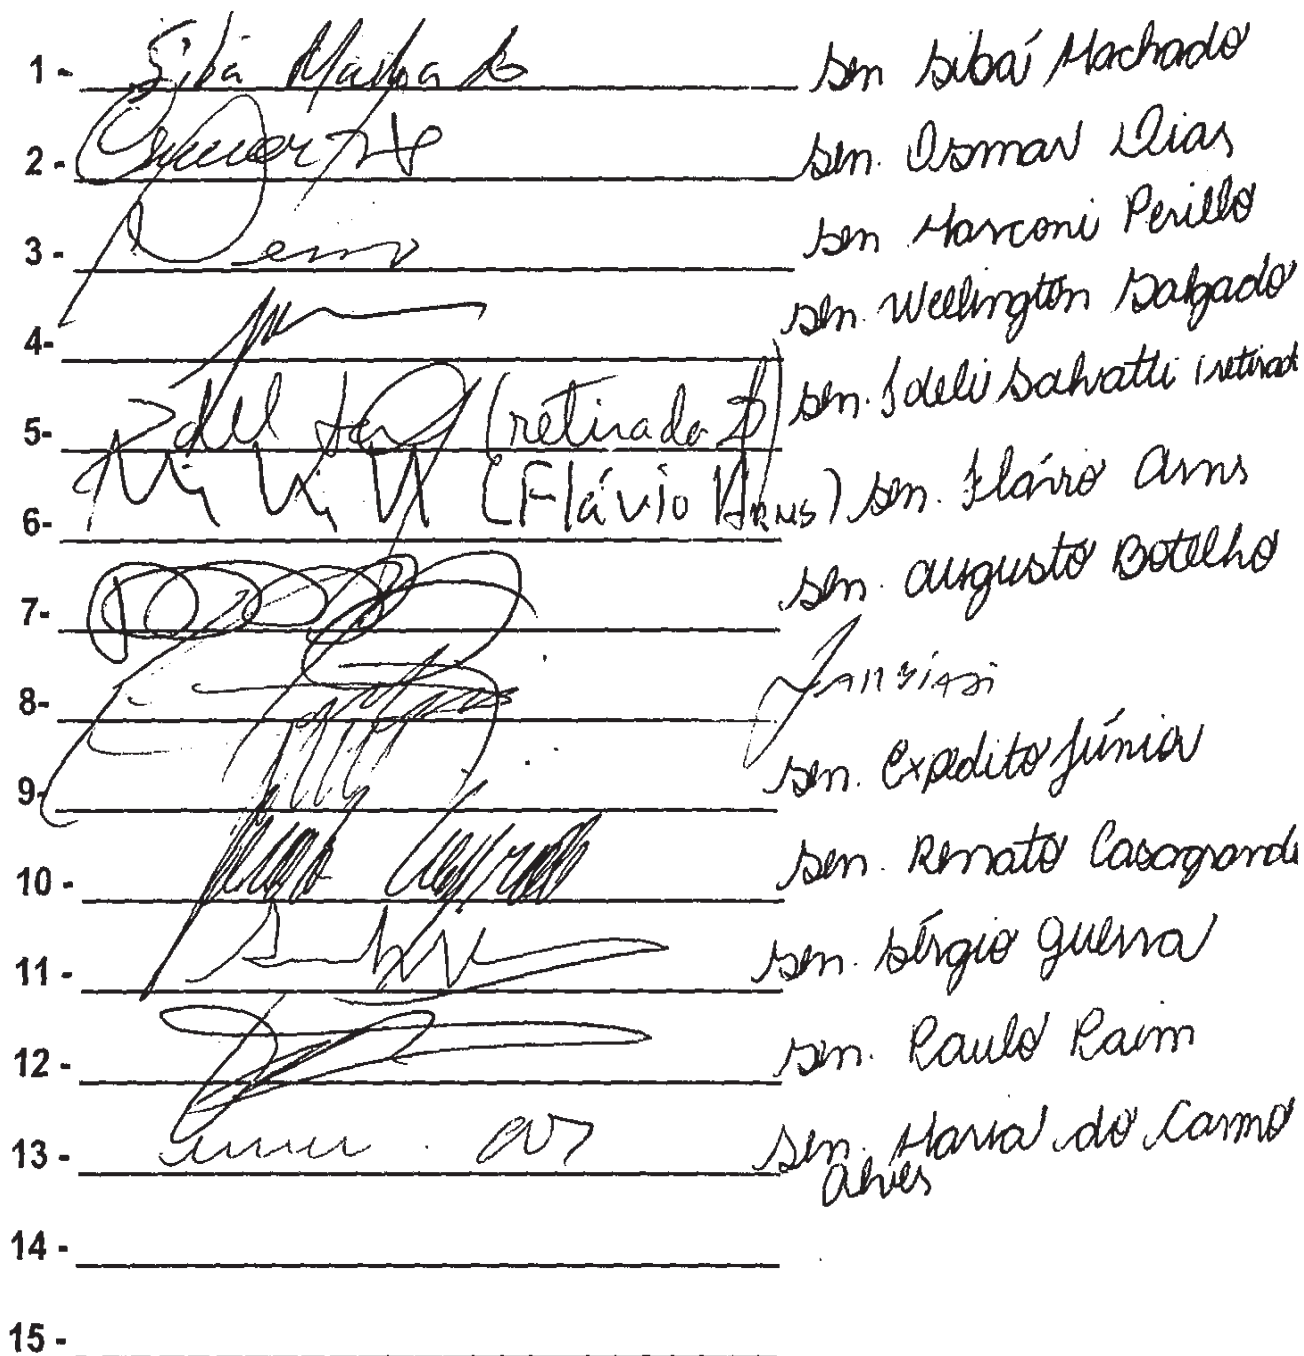 1- Sibá Machado sen Sibá Machado
2- sen. Osmar Dias
3- sen Marconi Perillo
4- sen. Wellington Salgado
5- (retirada) sen. Ideli Salvatti (retirad
6- (Flávio Arns) sen. Flávio Arns
7- sen. Augusto Botelho
8- Zambiasi
9- sen. Expedito Júnior
10- sen. Renato Casagrande
11- sen. Sérgio Guerra
12- sen. Paulo Paim
13- sen. Maria do Carmo
Alves
14-
15-